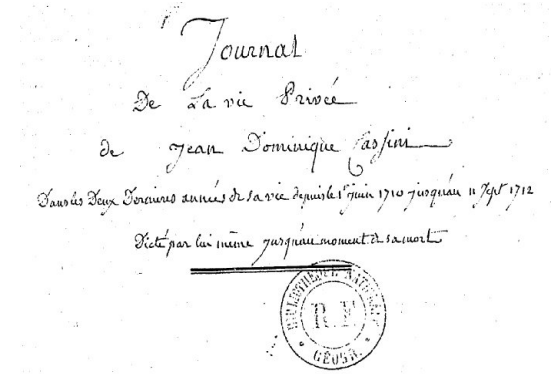 Journal
De La vie Privée
de Jean Dominique Cassini
Dans les Deux Dernieres années de sa vie depuis le 1er juin 1710 jusqu'au 11 Sept 1712
Dicté par lui même jusqu'au moment de sa mort
BIBLIOTHÈQUE NATIONALE
R.F.
GÉOGR.